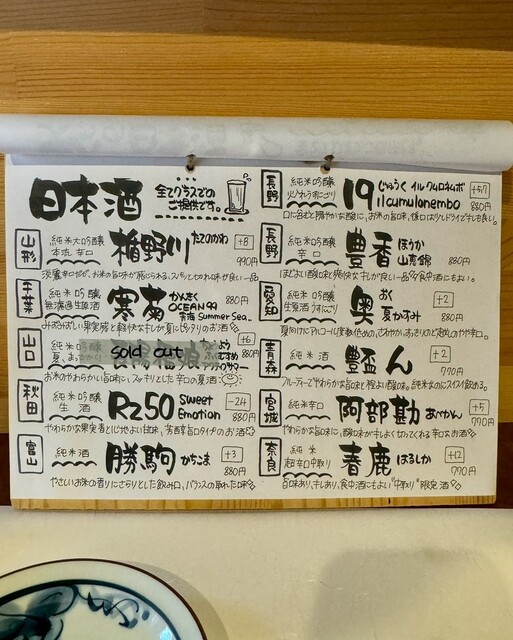 日本酒
全てグラスでの
ご提供です。
山形
純米大吟醸
本流 辛口
楯野川
たてのがわ
+8
990円
淡麗辛口だが、お米の旨味が感じられる、スパッとキレ味が良い一品
千葉
純米吟醸
無濾過生原酒
寒菊
かんきく
OCEAN99
青海 Summer Sea.
880円
夏の酒
山口
純米吟醸
sold out
長陽福娘
+6
880円
お米のやわらかい旨味に、スッキリとした辛口の夏酒
秋田
純米吟醸
生酒
Rz50
Sweet
Emotion
-24
880円
やわらかな果実香と心地よい甘味、芳醇旨口タイプのお酒
富山
純米酒
勝駒
かちこま
+3
880円
やさしいお米の香りにさらりとした飲み口、バランスの取れた味
長野
純米吟醸
火入れうすにごり
19
じゅうく イル クムロネムボ
ilcumulonembo
880円
長野
純米吟醸
辛口
豊香
ほうか
山恵錦
880円
ほどよい酸味と爽快なキレが良い一品 食中酒にもよい。
愛知
純米吟醸
生原酒うすにごり
奥
おく
夏かすみ
+2
880円
夏向けにアルコール度数低めの、さわやか、あっさりの
青森
純米酒
豊盃
ん
+2
770円
フルーティーでやわらかな旨味と程よい酸味。純米なのにスイスイ飲める。
宮城
純米辛口
阿部勘
あべかん
+5
770円
やわらかな旨味に、酸味がキレよく切ってくれる辛口なお酒
奈良
純米
超辛口中取り
春鹿
はるしか
+12
770円
旨味あり、キレあり、食中酒にもよい"中取り"限定酒